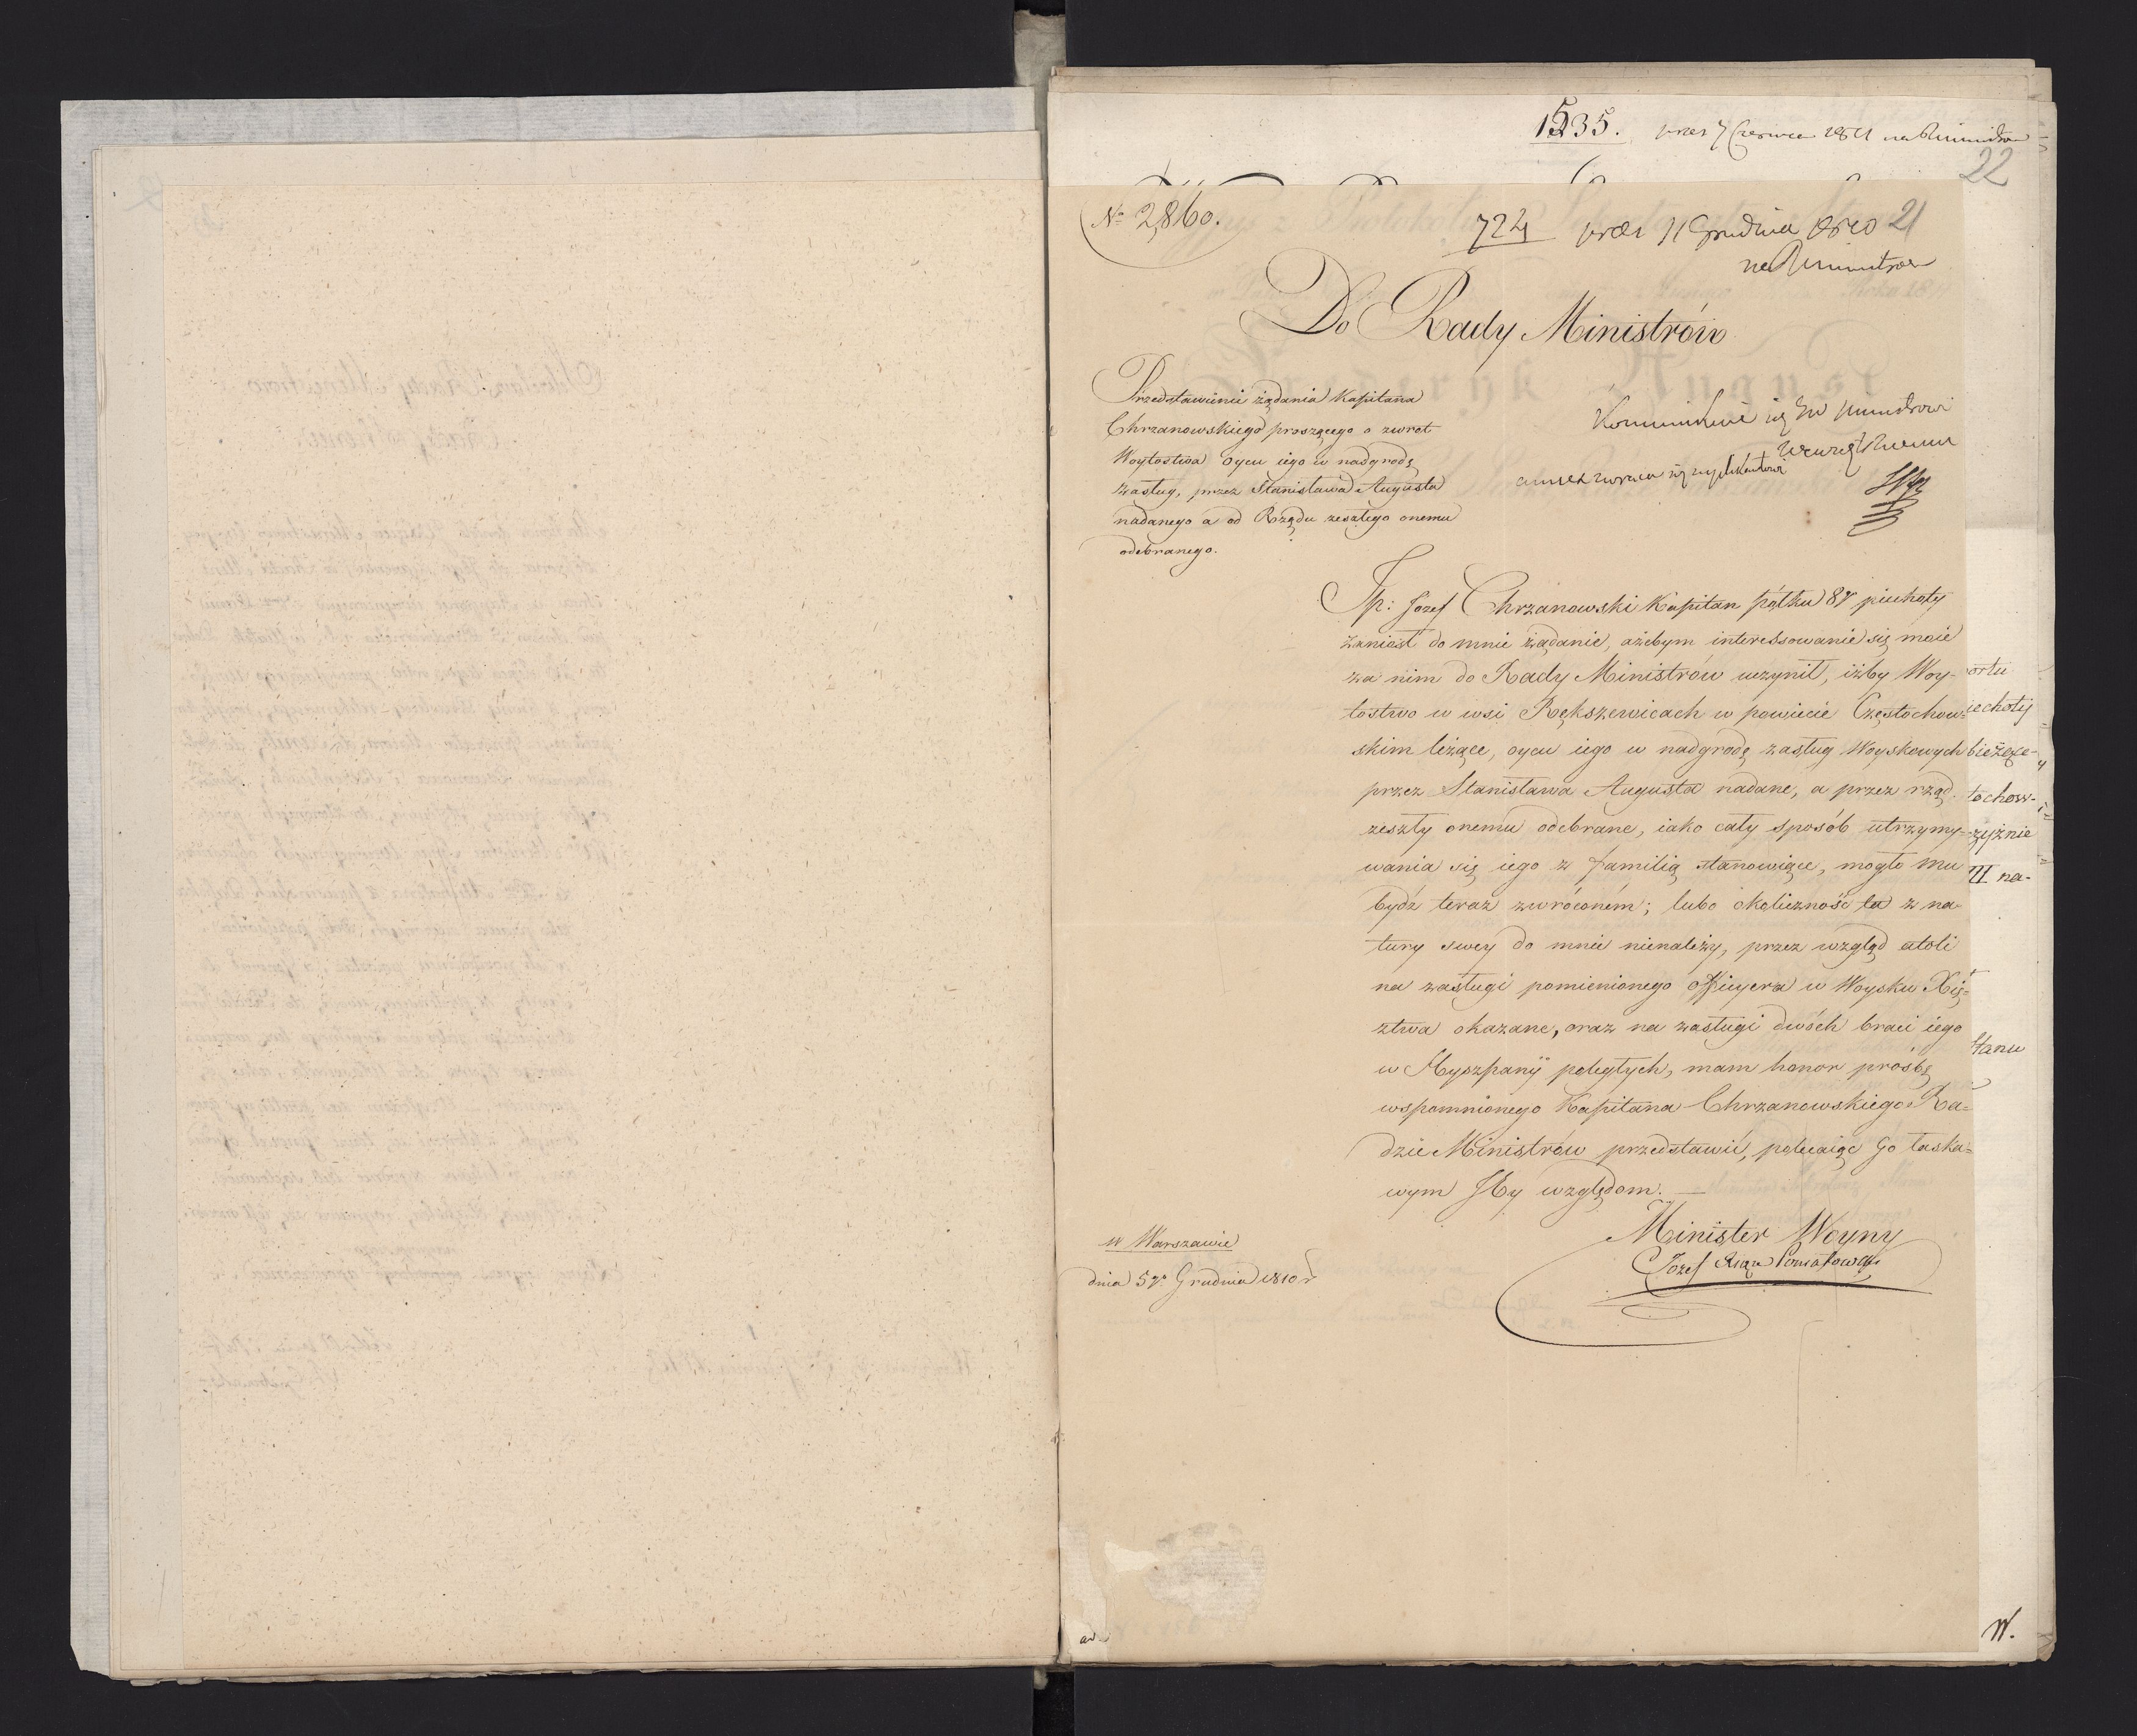 1535. prez 7 Czerwca 1811 na Rministrow
22
No 2,860.
724 prez 11 Grudnia 1810 21
na Rministrow
Do Rady Ministrów
Przedstawienie żądania Kapitana
Chrzanowskiego proszącego o zwrot
Woytostwa oycu iego w nadgrodę
zasług, przez Stanisława Augusta
nadanego a od Rządu zeszłego onemu
odebranego.
Kommunikuie się JW Ministrowi
Wewnętrznemu
JP: Jozef Chrzanowski Kapitan pólku 8go piechoty
zaniósł do mnie żądanie, ażebym interessowanie się moie
za nim do Rady Ministrów uczynił, iżby Woy-
tostwo w wsi Rększewicach w powiecie Częstochow=
skim leżące, oycu iego w nadgrodę zasług Woyskowych
przez Stanisława Augusta nadane, a przez rząd
zeszły onemu odebrane, iako cały sposób utrzymy=
wania się iego z familią stanowiące, mogło mu
bydź teraz zwróconém; lubo okoliczność ta z na=
tury swey do mnie nienależy, przez wzgląd atoli
na zasługi pomienionego Officyera w Woysku Xię=
ztwa okazane, oraz na zasługi dwóch braci iego
w Hyszpanÿ poległych, mam honor prośbę
wspomnionego Kapitana Chrzanowskiego Ra=
dzie Ministrów przedstawić, polecaiąc Go łaska=
wym Jey względom.
w Warszawie
dnia 5go Grudnia 1810 r
Minister Woyny
Jozef Xiąże Poniatowski
ortu
iechoty
bieżące
tochow-
zyźnie
III na-
Stanu
ad
W.